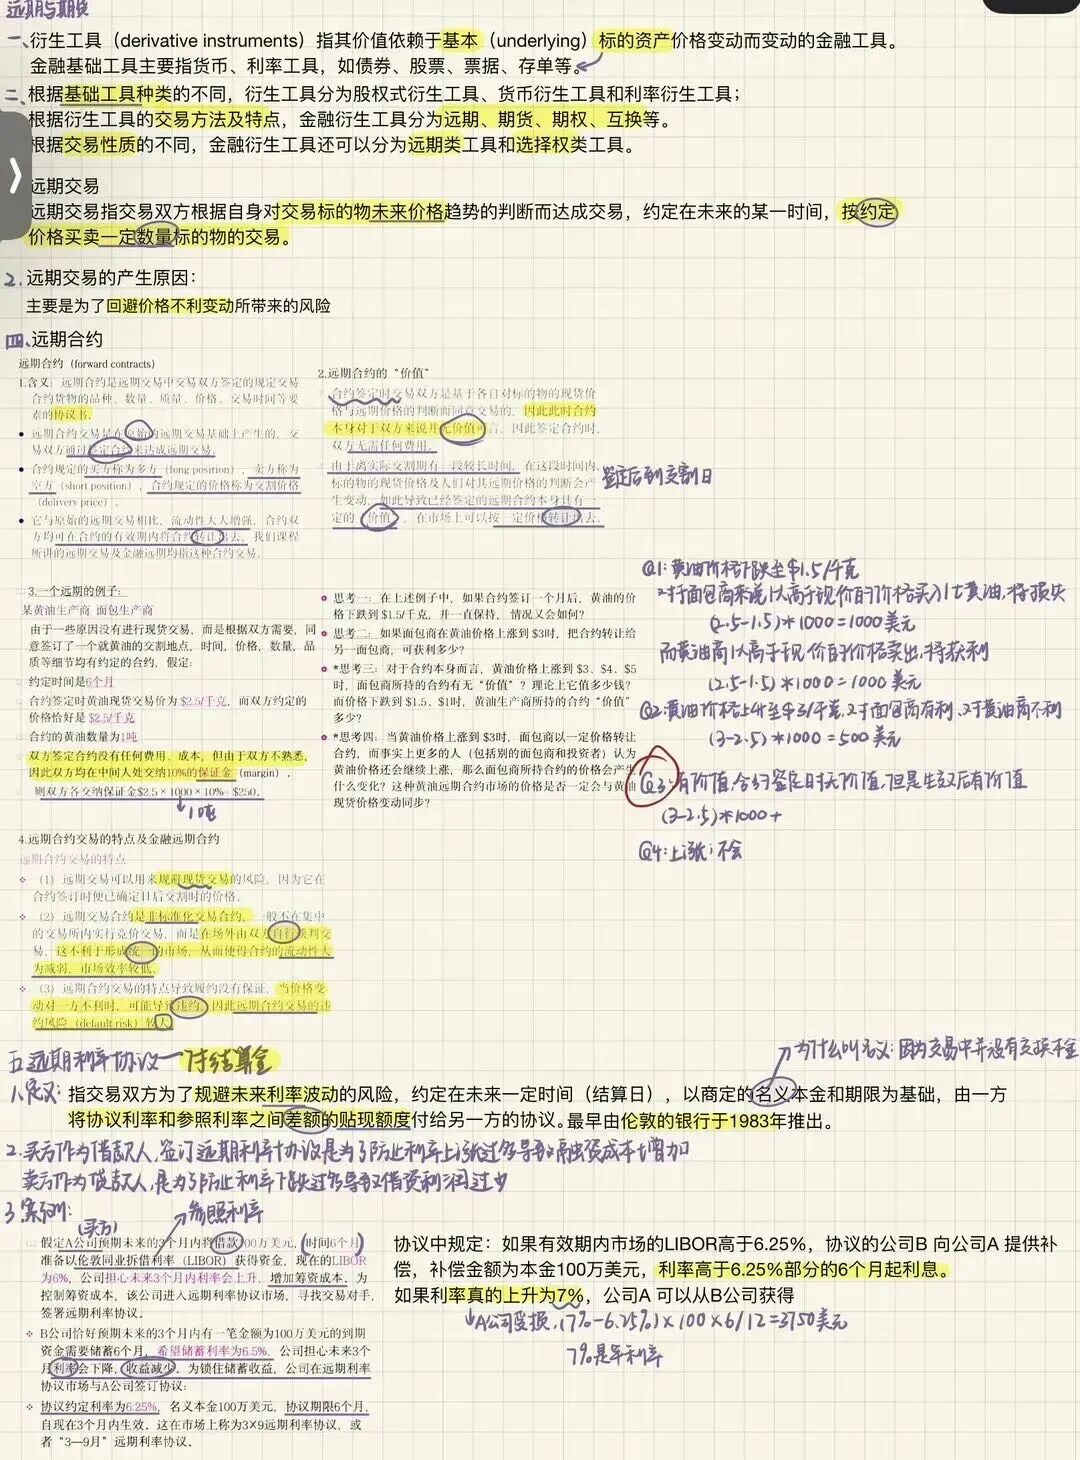 远期与期货
一、衍生工具（derivative instruments）指其价值依赖于基本（underlying）标的资产价格变动而变动的金融工具。
金融基础工具主要指货币、利率工具，如债券、股票、票据、存单等。
二、根据基础工具种类的不同，衍生工具分为股权式衍生工具、货币衍生工具和利率衍生工具；
根据衍生工具的交易方法及特点，金融衍生工具分为远期、期货、期权、互换等。
根据交易性质的不同，金融衍生工具还可以分为远期类工具和选择权类工具。
远期交易
远期交易指交易双方根据自身对交易标的物未来价格趋势的判断而达成交易，约定在未来的某一时间，按约定
价格买卖一定数量标的物的交易。
2.远期交易的产生原因：
主要是为了回避价格不利变动所带来的风险
四、远期合约
远期合约（forward contracts）
1.含义：远期合约是远期交易中交易双方签定的规定交易
合约货物的品种、数量、质量、价格、交易时间等要
素的协议书。
远期合约交易是在原始的远期交易基础上产生的，交
易双方通过签定合约来达成远期交易。
合约规定的买方称为多方（long position），卖方称为
空方（short position），合约规定的价格称为交割价格
（delivery price）。
它与原始的远期交易相比，流动性大大增强，合约双
方均可在合约的有效期内将合约转让出去，我们课程
所讲的远期交易及金融远期均指这种合约交易。
2.远期合约的“价值”
合约签定时交易双方是基于各自对标的物的现货价
格与远期价格的判断而同意交易的，因此此时合约
本身对于双方来说并无价值可言，因此签定合约时，
双方无需任何费用。
由于离实际交割期有一段较长时间，在这段时间内，
标的物的现货价格及人们对其远期价格的判断会产
生变动，如此导致已经签定的远期合约本身具有一
定的“价值”，在市场上可以按一定价格转让出去。
签定后到交割日
3.一个远期的例子：
某黄油生产商 面包生产商
由于一些原因没有进行现货交易，而是根据双方需要，同
意签订了一个就黄油的交割地点，时间，价格，数量，品
质等细节均有约定的合约，假定：
约定时间是6个月
合约签定时黄油现货交易价为 $2.5/千克，而双方约定的
价格恰好是 $2.5/千克
合约的黄油数量为1吨
双方签定合约没有任何费用、成本，但由于双方不熟悉，
因此双方均在中间人处交纳10%的保证金（margin）。
则双方各交纳保证金$2.5×1000×10%=$250。
1吨
思考一：在上述例子中，如果合约签订一个月后，黄油的价
格下跌到 $1.5/千克，并一直保持，情况又会如何？
思考二：如果面包商在黄油价格上涨到 $3时，把合约转让给
另一面包商，可获利多少？
*思考三：对于合约本身而言，黄油价格上涨到 $3、$4、$5
时，面包商所持的合约有无“价值”？理论上它值多少钱？
而价格下跌到 $1.5、$1时，黄油生产商所持的合约“价值”
多少？
*思考四：当黄油价格上涨到 $3时，面包商以一定价格转让
合约，而事实上更多的人（包括别的面包商和投资者）认为
黄油价格还会继续上涨，那么面包商所持合约的价格会产生
什么变化？这种黄油远期合约市场的价格是否一定会与黄油
现货价格变动同步？
Q1：黄油价格下跌至$1.5/千克
对于面包商来说以高于现价的价格买入1t黄油，将损失
(2.5-1.5)*1000=1000美元
而黄油商以高于现价的价格卖出，将获利
(2.5-1.5)*1000=1000美元
Q2：黄油价格上升至$3/千克，对于面包商有利，对于黄油商不利
(3-2.5)*1000=500美元
Q3：有价值，合约签定时无价值，但是生效后有价值
(3-2.5)*1000+
Q4：上涨；不会
4.远期合约交易的特点及金融远期合约
远期合约交易的特点
（1）远期交易可以用来规避现货交易的风险，因为它在
合约签订时便已确定日后交割时的价格。
（2）远期交易合约是非标准化交易合约，一般不在集中
的交易所内实行竞价交易，而是在场外由双方自行谈判交
易，这不利于形成统一的市场，从而使得合约的流动性大
为减弱，市场效率较低。
（3）远期合约交易的特点导致履约没有保证，当价格变
动对一方不利时，可能导致违约，因此远期合约交易的违
约风险（default risk）较大
五.远期利率协议—付结算金
为什么叫名义：因为交易中并没有交换本金
1.定义：指交易双方为了规避未来利率波动的风险，约定在未来一定时间（结算日），以商定的名义本金和期限为基础，由一方
将协议利率和参照利率之间差额的贴现额度付给另一方的协议。最早由伦敦的银行于1983年推出。
2.买方作为借款人，签订远期利率协议是为了防止利率上涨过多导致融资成本增加
卖方作为贷款人，是为了防止利率下跌过多导致借贷利润过少
3.案例：
(买方)
参照利率
假定A公司预期未来的3个月内将借款100万美元，（时间6个月）
准备以伦敦同业拆借利率（LIBOR）获得资金，现在的LIBOR
为6%，公司担心未来3个月内利率会上升，增加筹资成本，为
控制筹资成本，该公司进入远期利率协议市场，寻找交易对手，
签署远期利率协议。
B公司恰好预期未来的3个月内有一笔金额为100万美元的到期
资金需要储蓄6个月，希望储蓄利率为6.5%，公司担心未来3个
月利率会下降，收益减少，为锁住储蓄收益，公司在远期利率
协议市场与A公司签订协议：
协议约定利率为6.25%，名义本金100万美元，协议期限6个月，
自现在3个月内生效。这在市场上称为3×9远期利率协议，或
者“3—9月”远期利率协议。
协议中规定：如果有效期内市场的LIBOR高于6.25%，协议的公司B 向公司A 提供补
偿，补偿金额为本金100万美元，利率高于6.25%部分的6个月起利息。
如果利率真的上升为7%，公司A 可以从B公司获得
A公司受损，(7%-6.25%)×100×6/12=3750美元
7%是年利率